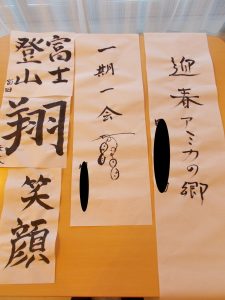 富士
登山
翔
笑顔
一期一会
迎春アミカの郷